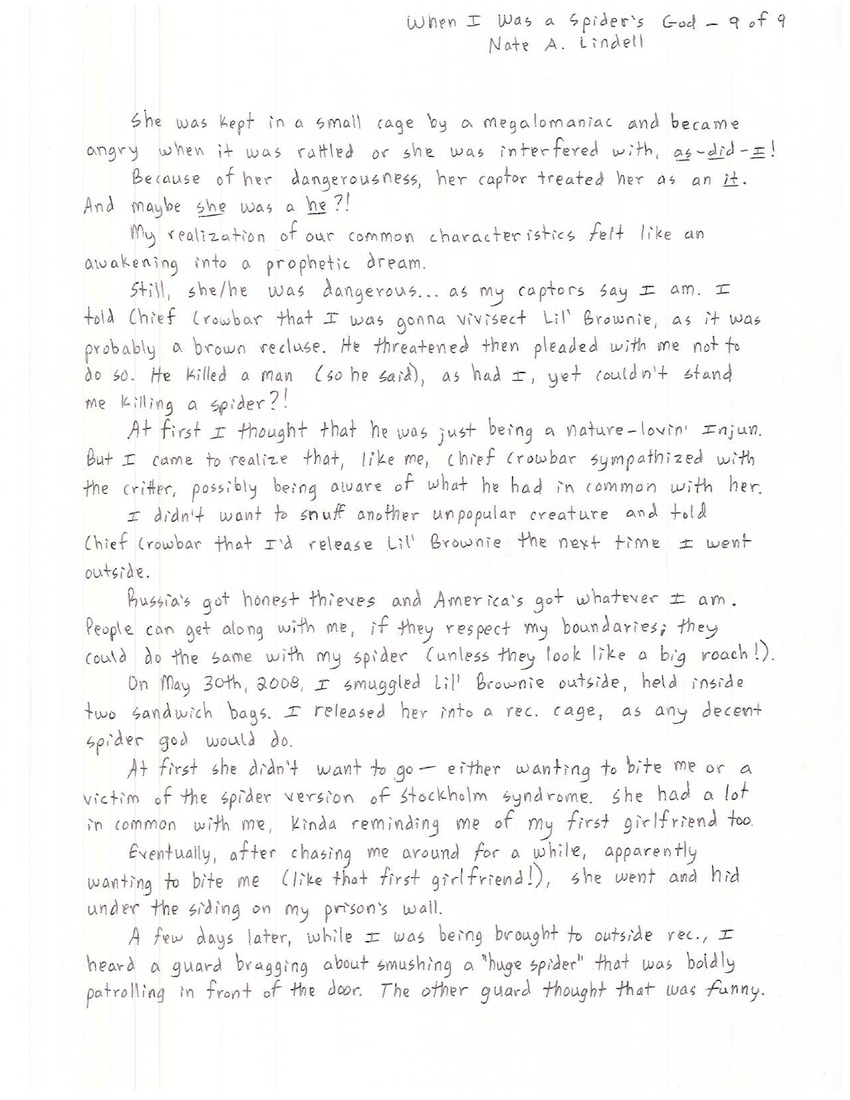 When I Was a Spider's God - 9 of 9
Nate A. Lindell
She was kept in a small cage by a megalomaniac and became
angry when it was rattled or she was interfered with, as-did-I!
Because of her dangerousness, her captor treated her as an it.
And maybe she was a he?!
My realization of our common characteristics felt like an
awakening into a prophetic dream.
Still, she/he was dangerous... as my captors say I am. I
told Chief Crowbar that I was gonna vivisect Lil' Brownie, as it was
probably a brown recluse. He threatened then pleaded with me not to
do so. He killed a man (so he said), as had I, yet couldn't stand
me killing a spider?!
At first I thought that he was just being a nature-lovin' Injun.
But I came to realize that, like me, Chief Crowbar sympathized with
the critter, possibly being aware of what he had in common with her.
I didn't want to snuff another unpopular creature and told
Chief Crowbar that I'd release Lil' Brownie the next time I went
outside.
Russia's got honest thieves and America's got whatever I am.
People can get along with me, if they respect my boundaries; they
could do the same with my spider (unless they look like a big roach!).
On May 30th, 2008, I smuggled Lil' Brownie outside, held inside
two sandwich bags. I released her into a rec. cage, as any decent
spider god would do.
At first she didn't want to go — either wanting to bite me or a
victim of the spider version of Stockholm syndrome. She had a lot
in common with me, kinda reminding me of my first girlfriend too.
Eventually, after chasing me around for a while, apparently
wanting to bite me (like that first girlfriend!), she went and hid
under the siding on my prison's wall.
A few days later, while I was being brought to outside rec., I
heard a guard bragging about smushing a "huge spider" that was boldly
patrolling in front of the door. The other guard thought that was funny.